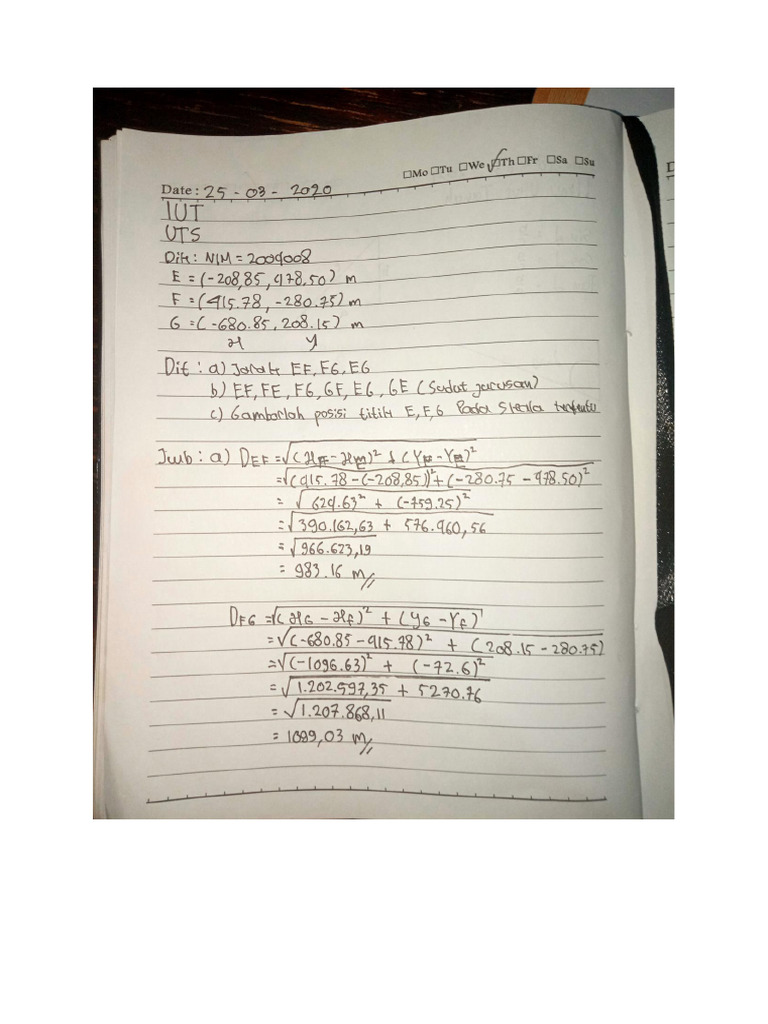 □Mo □Tu □We ☑Th □Fr □Sa □Su
Date : 25 - 03 - 2020
IUT
UTS
Dik : NIM = 2009008
E = (-208,85, 478.50) m
F = (415.78, -280.75) m
G = (-680.85, 208.15) m
x y
Dit : a) Jarak EF, FG, EG
b) EF, FE, FG, GF, EG, GE (Sudut jurusan)
c) Gambarlah posisi titik E, F, G Pada Skala tertentu
Jwb : a) DEF = √(xF - xE)² + (YF - YE)²
= √(415.78 - (-208,85))² + (-280.75 - 478.50)²
= √624.63² + (-759.25)²
= √390.162,63 + 576.460,56
= √966.623,19
= 983.16 m//
DFG = √(xG - xF)² + (yG - YF)²
= √(-680.85 - 415.78)² + (208.15 - 280.75)
= √(-1096.63)² + (-72.6)²
= √1.202.597,35 + 5270.76
= √1.207.868,11
= 1099,03 m//